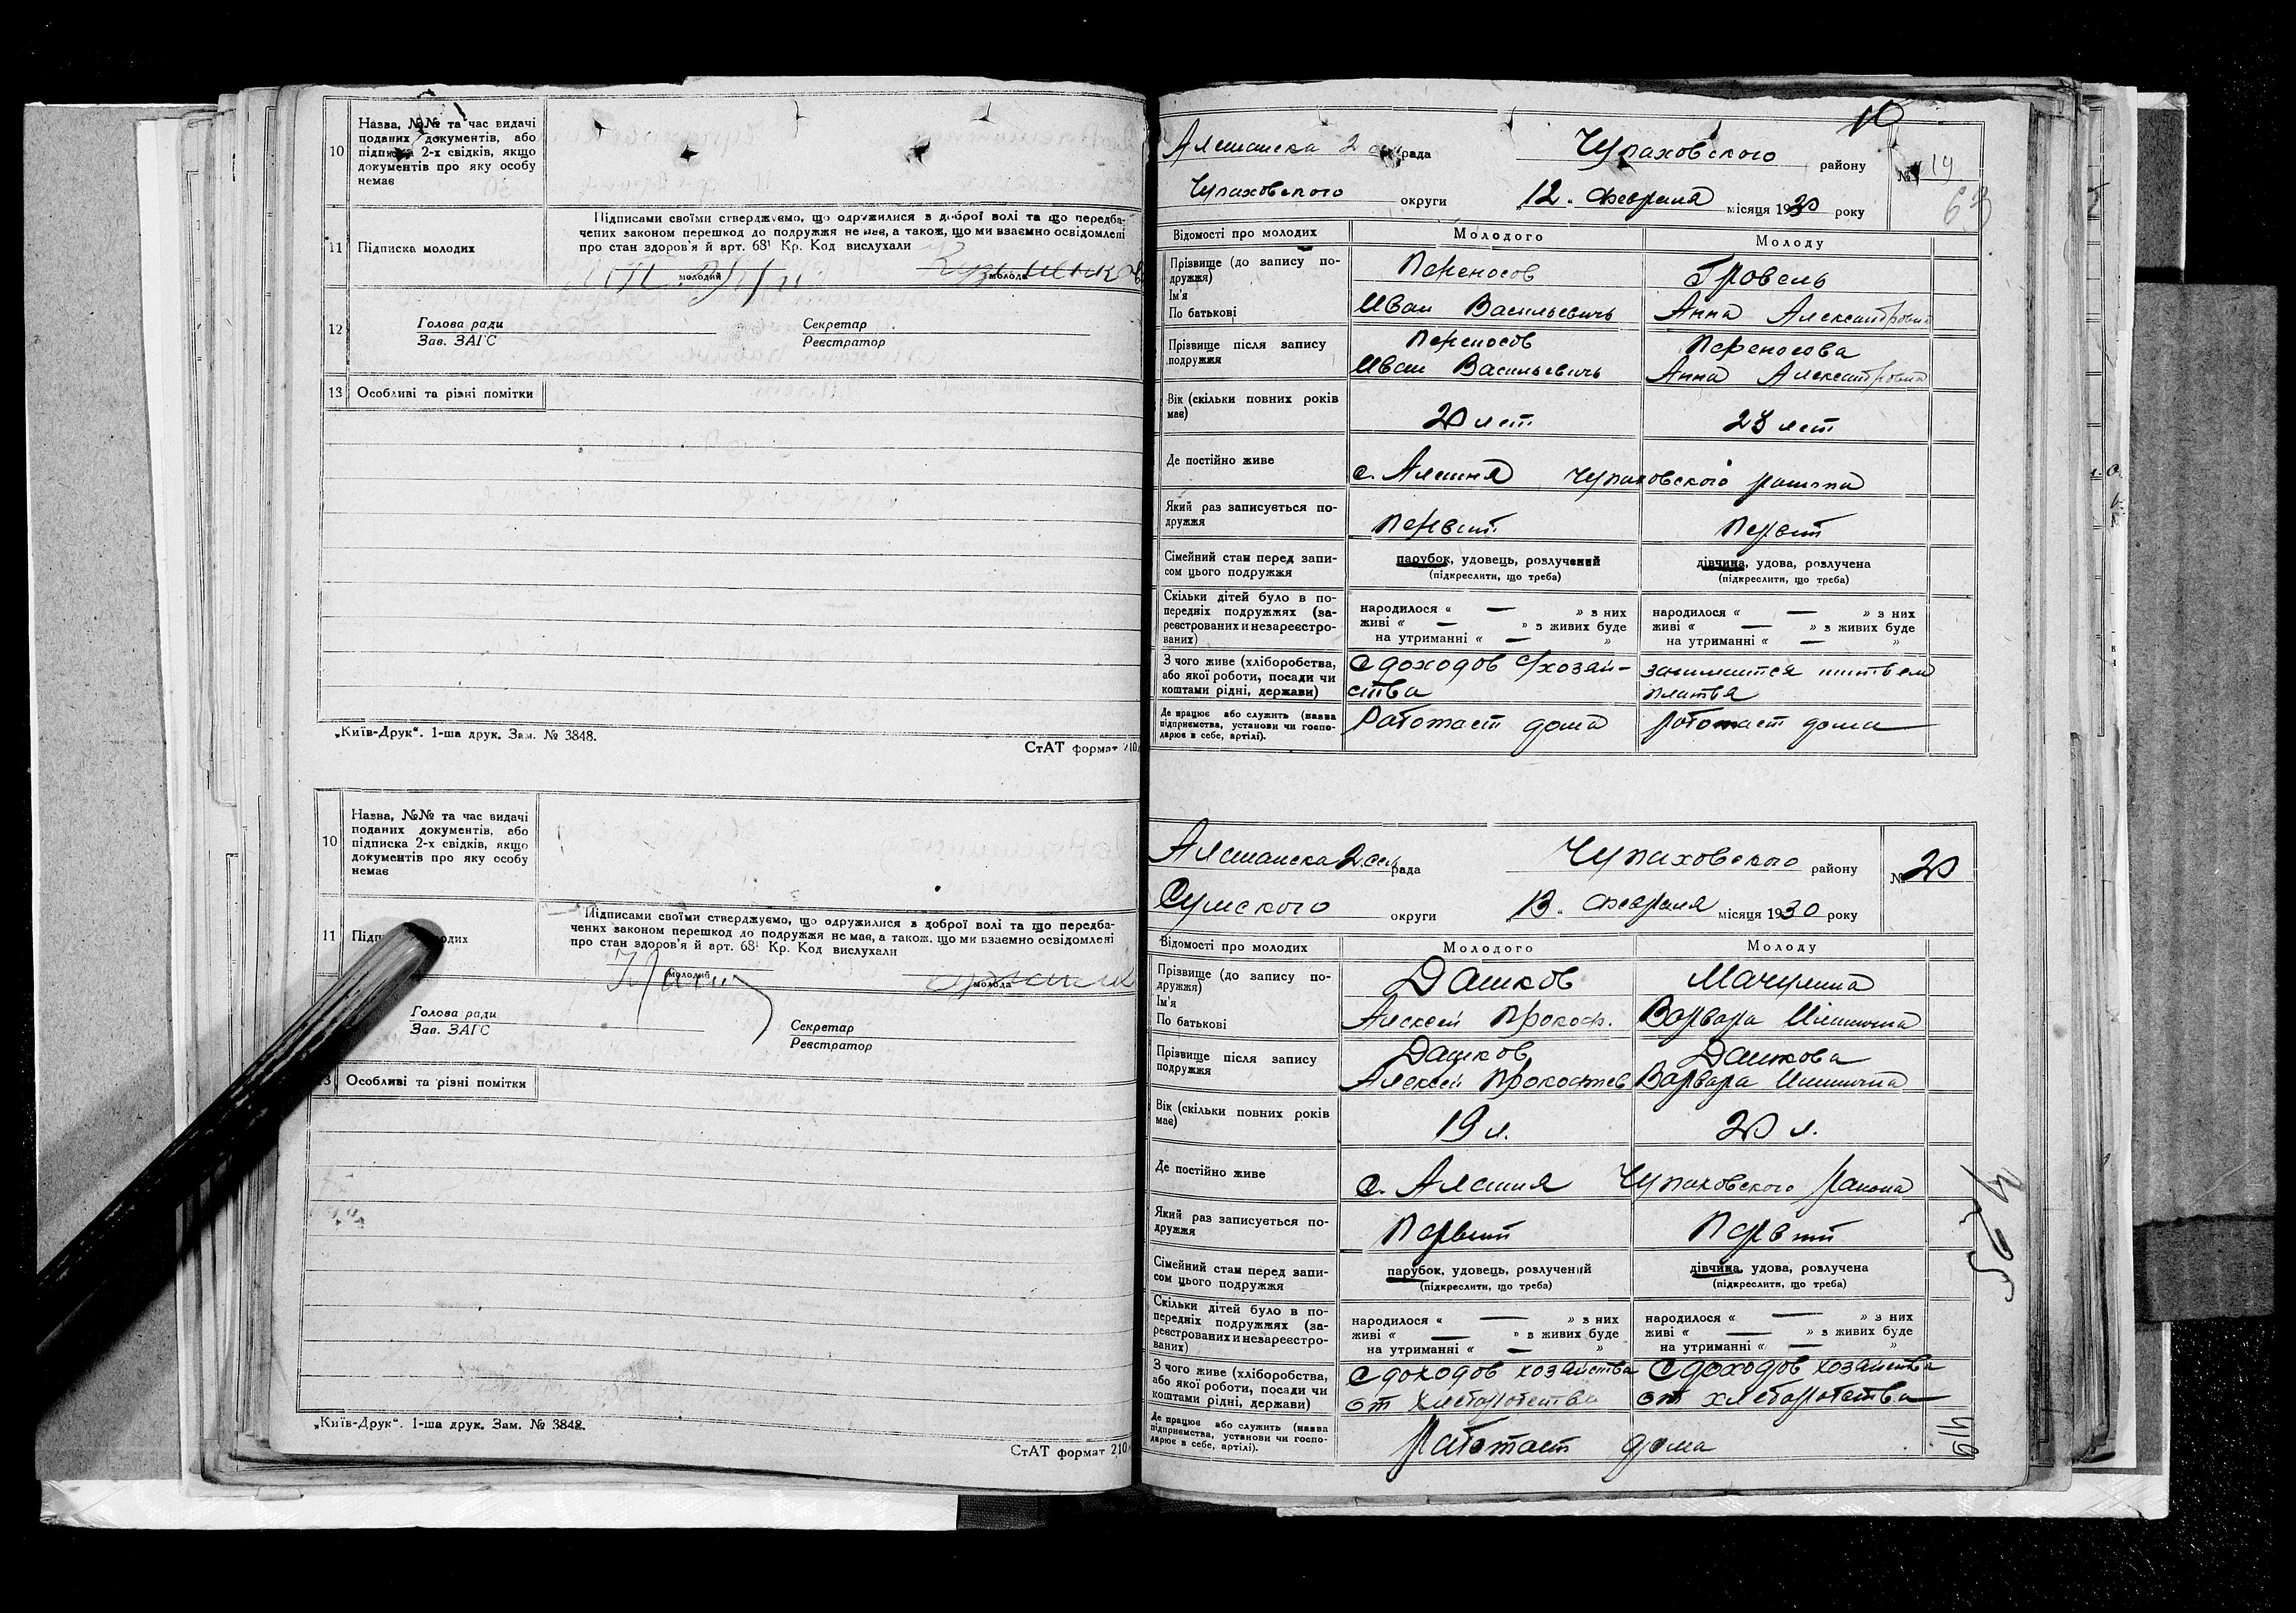 10
Назва, №№ та час видачі
поданих документів, або
підписка 2-х свідків, якщо
документів про яку особу
немає
11
Підписка молодих
Підписами своїми стверджуємо, що одружилися з доброї волі та що передба-
чених законом перешкод до подружжя не має, а також, що ми взаємно освідомлені
про стан здоров'я й арт. 68¹ Кр. Код вислухали
молодий
молода
12
Голова ради
Зав. ЗАГС
Секретар
Реєстратор
13
Особливі та різні помітки
„Київ-Друк“. 1-ша друк. Зам. № 3848.
СтАТ формат 210
10
Назва, №№ та час видачі
поданих документів, або
підписка 2-х свідків, якщо
документів про яку особу
немає
11
Підписами своїми стверджуємо, що одружилися з доброї волі та що передба-
чених законом перешкод до подружжя не має, а також, що ми взаємно освідомлені
про стан здоров'я й арт. 68¹ Кр. Код вислухали
молодий
молода
Голова ради
Зав. ЗАГС
Секретар
Реєстратор
Особливі та різні помітки
„Київ-Друк“. 1-ша друк. Зам. № 3848.
СтАТ формат 210
10
рада Чупаховского району
№ 19
Чупаховского округи „12„ Февраля місяця 1930 року
Відомості про молодих Молодого Молоду
Прізвище (до запису по-
дружжя)
Переносов
Ім'я
По батькові
Иван Васильевичь Анна Александровна
Прізвище після запису
подружжя
Переносов Переносова
Иван Васильевичь Анна Александровна
Вік (скільки повних років
має)
20 лет 28 лет
Де постійно живе
с. Алешня Чупаховского района
Який раз записується по-
дружжя
Сімейний стан перед запи-
сом цього подружжя
парубок, удовець, розлучений дівчина, удова, розлучена
(підкреслити, що треба) (підкреслити, що треба)
Скільки дітей було в по-
передніх подружжях (за-
реєстрованих и незареєстро-
ваних)
народилося « — » з них народилося « — » з них
живі « — » з живих буде живі « — » з живих буде
на утриманні « — » на утриманні « — »
З чого живе (хліборобства,
або якої роботи, посади чи
коштами рідні, держави)
С доходов с/хозяй- занимается шитьем
ства платья
Де працює або служить (назва
підприємства, установи чи госпо-
дарює в себе, артілі).
Работает дома работает дома
рада Чупаховского району
№ 20
Сумского округи „13„ Февраля місяця 1930 року
Відомості про молодих Молодого Молоду
Прізвище (до запису по-
дружжя)
Дашков
Ім'я
По батькові
Алексей Прокоф. Варвара Ильинична
Прізвище після запису
подружжя
Дашков Дашкова
Алексей Прокофьев Варвара Ильинична
Вік (скільки повних років
має)
19 л. 20 л.
Де постійно живе
с. Алешня Чупаховского района
Який раз записується по-
дружжя
Сімейний стан перед запи-
сом цього подружжя
парубок, удовець, розлучений дівчина, удова, розлучена
(підкреслити, що треба) (підкреслити, що треба)
Скільки дітей було в по-
передніх подружжях (за-
реєстрованих и незареєстро-
ваних)
народилося « — » з них народилося « — » з них
живі « — » з живих буде живі « — » з живих буде
на утриманні « — » на утриманні « — »
З чого живе (хліборобства,
або якої роботи, посади чи
коштами рідні, держави)
С доходов хозяйства С доходов хозяйства
от хлеборобства от хлеборобства
Де працює або служить (назва
підприємства, установи чи госпо-
дарює в себе, артілі).
Работает дома